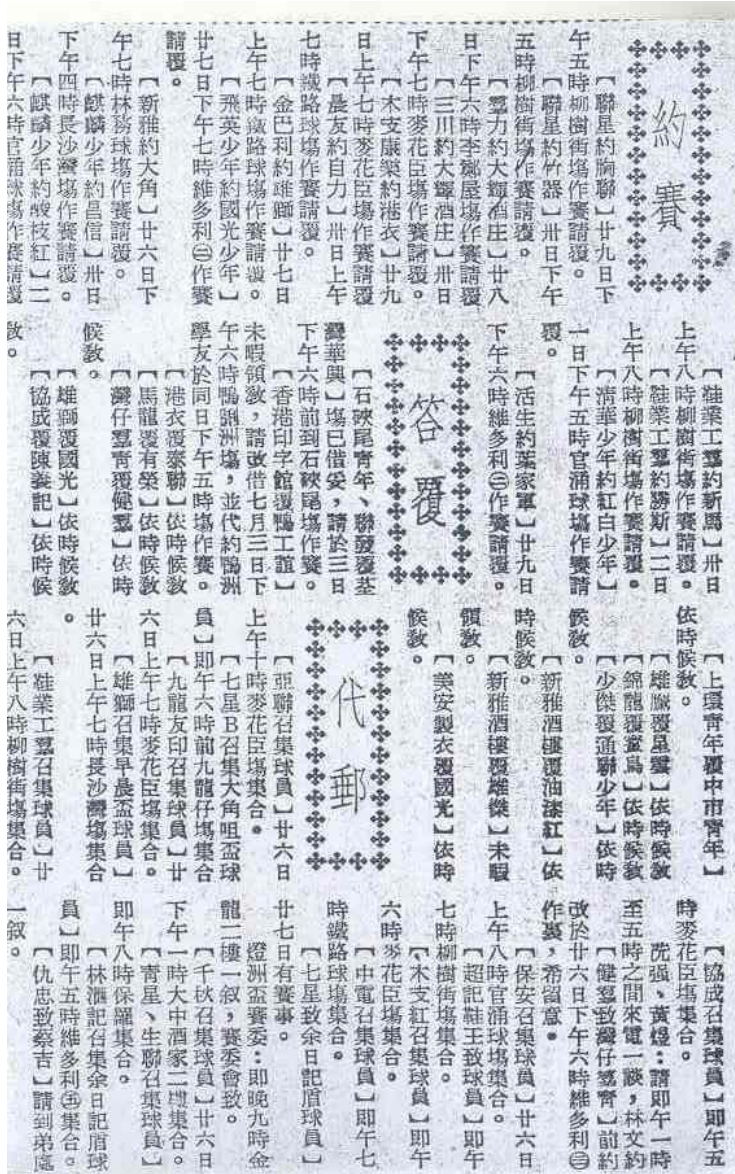 約賽
【聯星約胸聯】廿九日下
午五時柳樹街塲作賽請覆。
【聯星約竹器】卅日下午
五時柳樹街塲作賽請覆。
【羣力約大輝酒庄】廿八
日下午六時李鄭屋塲作賽請覆
【三川約大輝酒庄】卅日
下午七時麥花臣塲作賽請覆。
【木支康樂約港衣】廿九
日上午七時麥花臣塲作賽請覆
【晨友約自力】卅日上午
七時鐵路球塲作賽請覆。
【金巴利約雄獅】廿七日
上午七時鐵路球塲作賽請覆。
【飛英少年約國光少年】
廿七日下午七時維多利㊂作賽
請覆。
【新雅約大角】廿六日下
午七時林務球塲作賽請覆。
【麒麟少年約昌信】卅日
下午四時長沙灣塲作賽請覆。
【麒麟少年約酸枝紅】二
日下午六時官涌球塲作賽請覆
【鞋業工羣約新馬】卅日
上午八時柳樹街塲作賽請覆。
【鞋業工羣約勝斯】二日
上午八時柳樹街塲作賽請覆。
【清華少年約紅白少年】
一日下午五時官涌球塲作賽請
覆。
【活生約葉家軍】廿九日
下午六時維多利㊂作賽請覆。
答覆
【石硤尾青年、聯發覆荃
灣華興】塲已借妥，請於三日
下午六時前到石硤尾塲作賽。
【香港印字館覆鴨工誼】
未暇領敎，請改借七月三日下
午六時鴨脷洲塲，並代約鴨洲
學友於同日下午五時塲作賽。
【港衣覆泰聯】依時候敎
【馬龍覆有榮】依時候敎
【灣仔羣靑覆健羣】依時
候敎。
【雄獅覆國光】依時候敎
【協成覆陳養記】依時候
敎。
【上環靑年覆中市靑年】
依時候敎。
【雄獅覆星雲】依時候敎
【錦龍覆萱島】依時候敎
【少傑覆通聯少年】依時
候敎。
【新雅酒樓覆油漆紅】依
時候敎。
【新雅酒樓覆雄傑】未暇
領敎。
【美安製衣覆國光】依時
候敎。
代郵
【亞聯召集球員】廿六日
上午十時麥花臣塲集合。
【七星B召集大角咀盃球
員】卽午六時前九龍仔塲集合
【九龍友印召集球員】廿
六日上午七時麥花臣塲集合。
【雄獅召集早晨盃球員】
廿六日上午七時長沙灣塲集合
。
【鞋業工羣召集球員】廿
六日上午八時柳樹街塲集合。
【協成召集球員】卽午五
時麥花臣塲集合。
冼强、黃煜：請卽午一時
至五時之間來電一談，林文約
【健羣致灣仔羣靑】前約
改於廿六日下午六時維多利㊂
作賽，希留意。
【保安召集球員】廿六日
上午八時官涌球塲集合。
【超記鞋王致球員】卽午
七時柳樹街塲集合。
【木支紅召集球員】卽午
六時麥花臣塲集合。
【中電召集球員】卽午七
時鐵路球塲集合。
【七星致余日記盾球員】
廿七日有賽事。
燈洲盃賽委：卽晚九時金
龍二樓一叙，賽委會致。
【千秋召集球員】廿六日
下午一時大中酒家二樓集合。
【靑星、生聯召集球員】
卽午八時保羅集合。
【林滙記召集余日記盾球
員】卽午五時維多利㊄集合。
【仇忠致蔡吉】請到弟處
一叙。